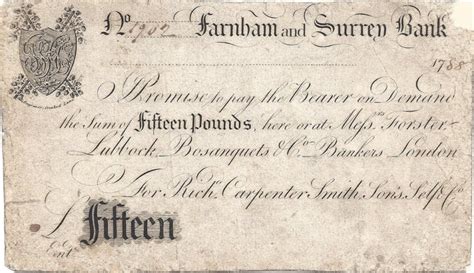 No 1902 Farnham and Surrey Bank
1788
I Promise to pay the Bearer on Demand
the Sum of Fifteen Pounds, here or at Messrs Forster
Lubbock, Bosanquets & Co Bankers London
For Richd Carpenter Smith, Sons, Self & Co
£ Fifteen
Entd